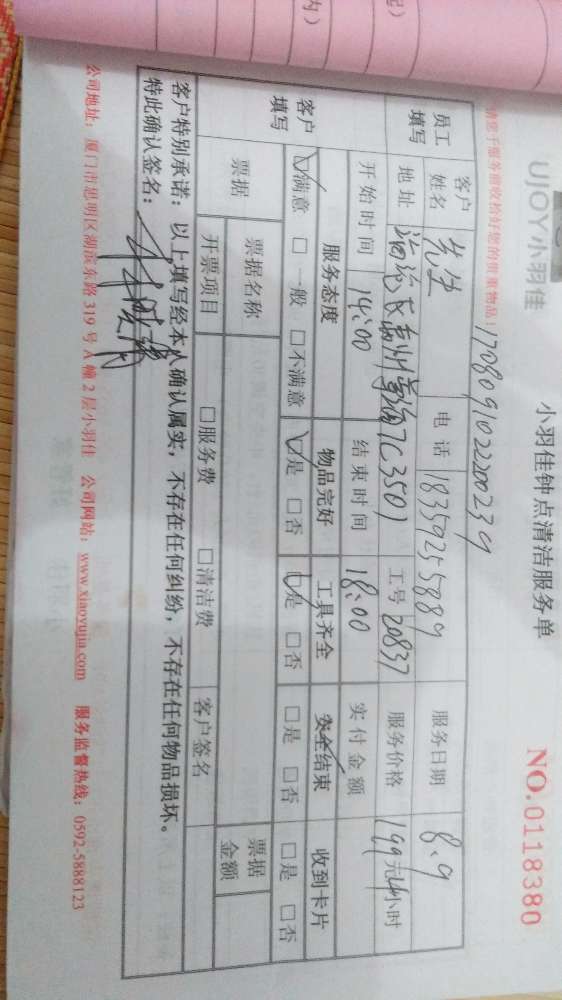 起）
内）
UJOY小羽佳
小羽佳钟点清洁服务单
NO.0118380
请您于服务前收拾好您的贵重物品！
1708091022200239
员工填写
客户姓名 先生 电话 18350255889 服务日期 8.9
地址 7C3501 工号 20837 服务价格 199元/4小时
开始时间 14:00 结束时间 18:00 实付金额
客户填写
服务态度 物品完好 工具齐全 安全结束 收到卡片
☑满意 □一般 □不满意 ☑是 □否 ☑是 □否 □是 □否 □是 □否
票据 票据名称 票据金额
开票项目 □服务费 □清洁费 客户签名
客户特别承诺：以上填写经本人确认属实，不存在任何纠纷，不存在任何物品损坏。
特此确认签名：
公司地址：厦门市思明区湖滨东路319号A幢2层小羽佳 公司网站：www.xiaoyujia.com 服务监督热线：0592-5888123